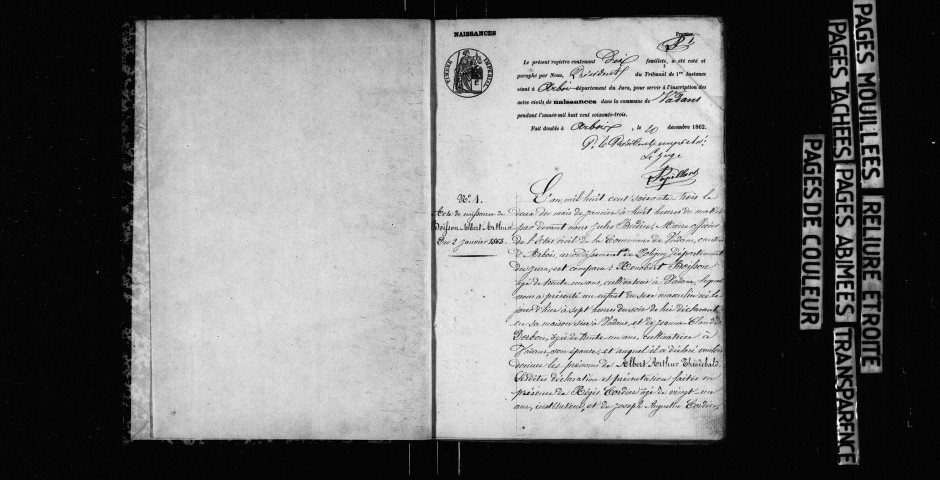 NAISSANCES
TIMBRE IMPÉRIAL
Premier
Le présent registre contenant feuillets, a été coté et
paraphé par Nous, Président du Tribunal de 1re Instance
séant à Arbois département du Jura, pour servir à l'inscription des
actes civils de naissances dans la commune de Vadans
pendant l'année mil huit cent soixante-trois.
Fait double à Arbois, le 20 décembre 1862.
P. le Président empêché:
Le Juge
N° 1.
Acte de naissance de
Boisson Albert Arthur
Du 2 Janvier 1863.
L'an mil huit cent soixante trois le
deux du mois de janvier à huit heures du matin
par devant nous Jules Maire officier
de l'état civil de la Commune de Vadans, canton
d'Arbois, arrondissement de Poligny, département
du Jura, est comparu: Boisson
âgé de trente un ans, cultivateur à Vadans, lequel
nous a présenté un enfant du sexe masculin né le
jour d'hier à sept heures du soir de lui déclarant
en sa maison sise à Vadans, et de Jeanne Claude
Dorbon, âgée de trente un ans, cultivatrice à
Vadans, son épouse, et auquel il a déclaré vouloir
donner les prénoms de Albert Arthur Théodebald.
Lesdites déclaration et présentation faites en
présence de Régis Cordier âgé de vingt un
ans, instituteur, et de Joseph Auguste Cordier,
PAGES MOUILLEES
PAGES TACHEES
PAGES DE COULEUR
RELIURE ETROITE
PAGES ABIMEES
TRANSPARENCE